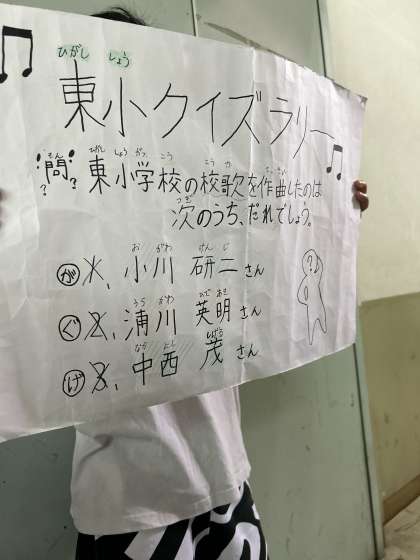 ひがし しょう
東小クイズラリー
もん ひがし しょう がっ こう こう か さっ きょく
問 東小学校の校歌を作曲したのは
つぎ
次のうち、だれでしょう。
お がわ けん じ
が 1、小川 研二さん
うら かわ ひで あき
ぐ 2、浦川 英明さん
なか にし しげる
げ 3、中西 茂さん